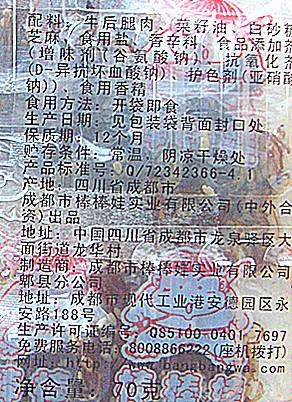 配料:牛后腿肉、菜籽油、白砂糖
芝麻、食用盐、香辛料、食品添加剂
(增味剂(谷氨酸钠)、抗氧化
(D-异抗坏血酸钠)、护色剂(亚硝酸
钠))、食用香精
食用方法:开袋即食
生产日期:见包装袋背面封口处
保质期:12个月
贮存条件:常温,阴凉干燥处
产品标准号:Q/72342366-4.1
产地:四川省成都市
成都市棒棒娃实业有限公司(中外合
资)出品
地址:中国四川省成都市龙泉驿区大
面街道龙华村
制造商:成都市棒棒娃实业有限公司
郫县分公司
地址:成都市现代工业港安德园区永
安路188号
生产许可证编号:085100-0401 7697
免费服务电话:8008866222(座机拨打)
网址:http://www.bangbangwa.c
净含量:70克